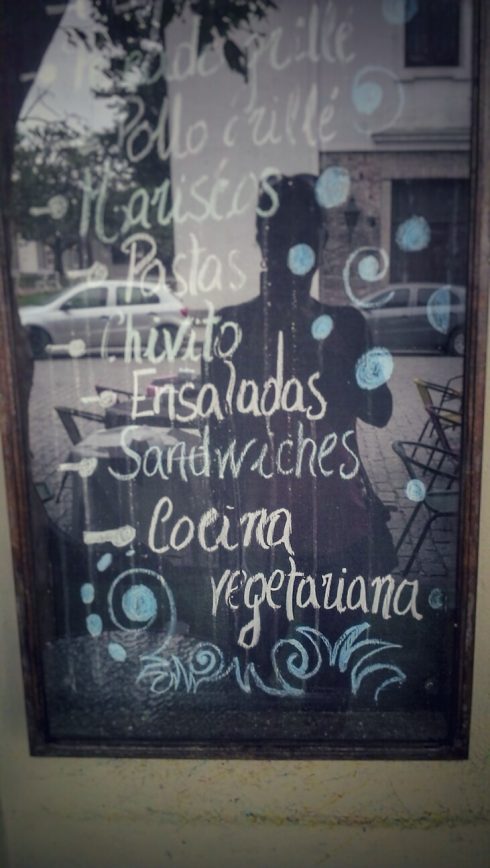 grillé
Pollo grillé
Mariscos
Pastas
Chivito
Ensaladas
Sandwiches
Cocina
vegetariana